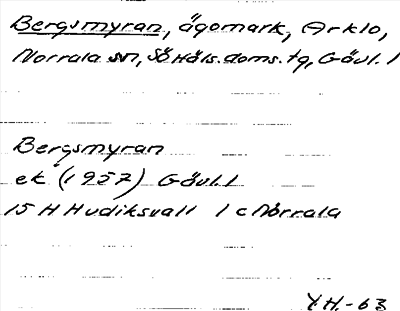 Bergsmyran, ägomark, Arklo,
Norrala sn, Sö Häls. doms. tg, Gävl. l
Bergsmyran
ek (1957) Gävl. l
15 H Hudiksvall 1 c Norrala
Y.H.-63